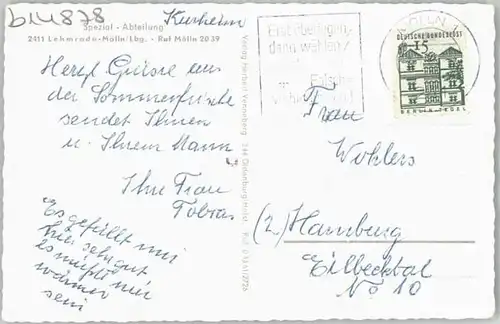 b14878
Kurheim
Spezial - Abteilung
2411 Lehmrade-Mölln/Lbg. - Ruf Mölln 2039
Herzl Grüsse aus
der Sommerfrische
sendet Ihnen
u. Ihrem Mann
Ihre Frau
Tobias
Es gefällt mir
hier sehr gut
es müßte nur
wärmer
sein
Verlag Herbert Vennenberg 244 Oldenburg/Holst.
Erst überlegen,
dann wählen!
Falsche
MÖLLN
DEUTSCHE BUNDESPOST
15
BERLIN-TEGEL
Frau
Wohlers
(2.) Hamburg
Eilbecktal
No 10